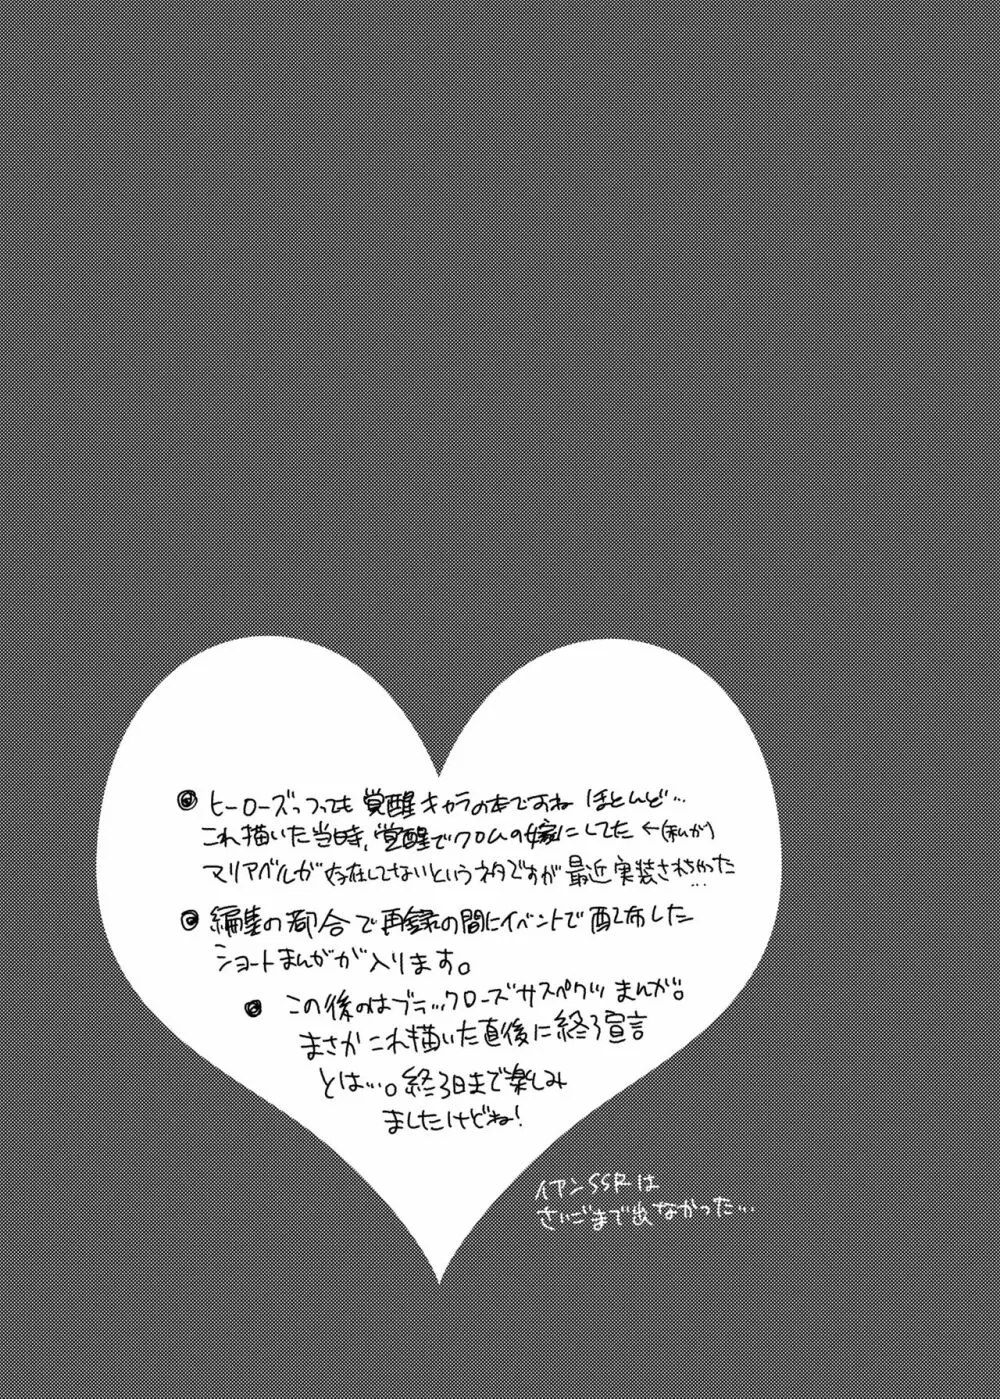 ◎ ヒーローズっつっても 覚醒キャラの本ですね ほとんど…
これ描いた当時、覚醒でクロムの嫁にしてた ←(私が)
マリアベルが存在してないというネタですが 最近実装されちゃった…
◎ 編集の都合で再録の間にイベントで配布した
ショートまんがが入ります。
◎ この後のはブラックローズサスペクツまんが。
まさかこれ描いた直後に終了宣言
とは…。終了日まで楽しみ
ましたけどね!
イアンSSRは
さいごまで出なかった…